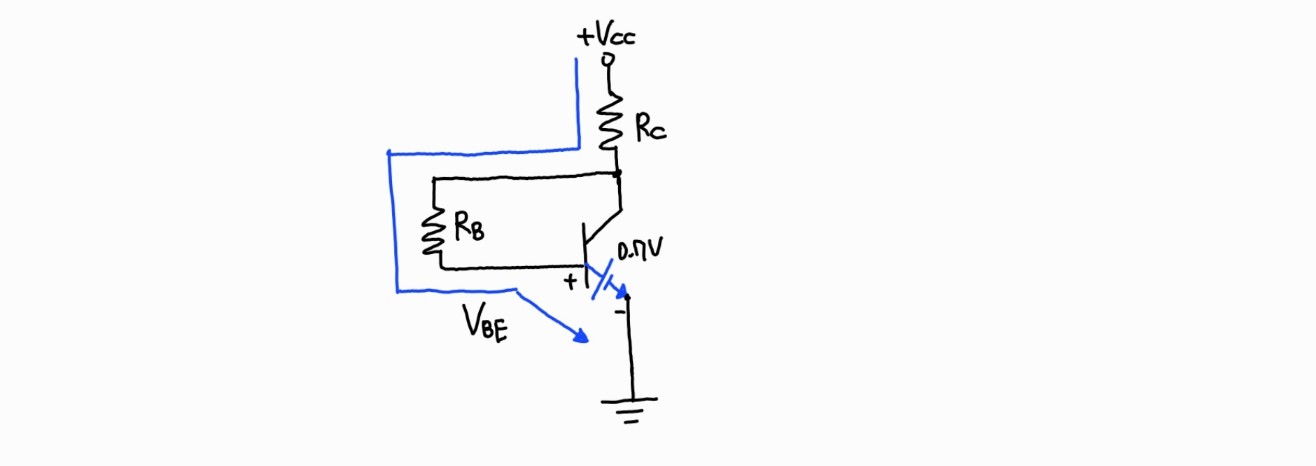 +Vcc
Rc
RB
0.7V
+
-
VBE